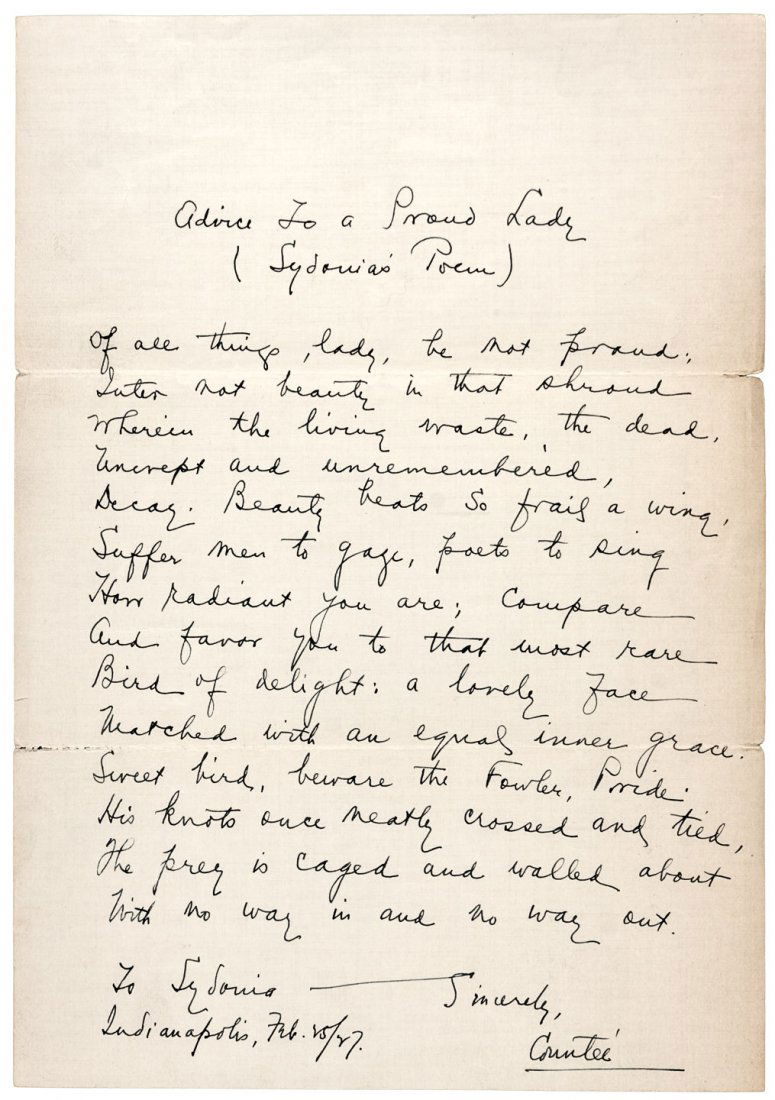 Advice To a Proud Lady
(Sydonia's Poem)
Of all things, lady, be not proud;
Inter not beauty in that shroud
Wherein the living waste, the dead,
Unwept and unrememberèd,
Decay. Beauty beats so frail a wing,
Suffer men to gaze, poets to sing
How radiant you are; compare
And favor you to that most rare
Bird of delight: a lovely face
Matched with an equal inner grace.
Sweet bird, beware the Fowler, Pride.
His knots once neatly crossed and tied,
The prey is caged and walled about
With no way in and no way out.
To Sydonia — Sincerely,
Indianapolis, Feb.
Counteé